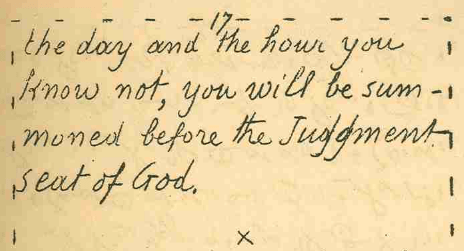 17
the day and the hour you
know not, you will be sum-
moned before the Judgment
seat of God.
x